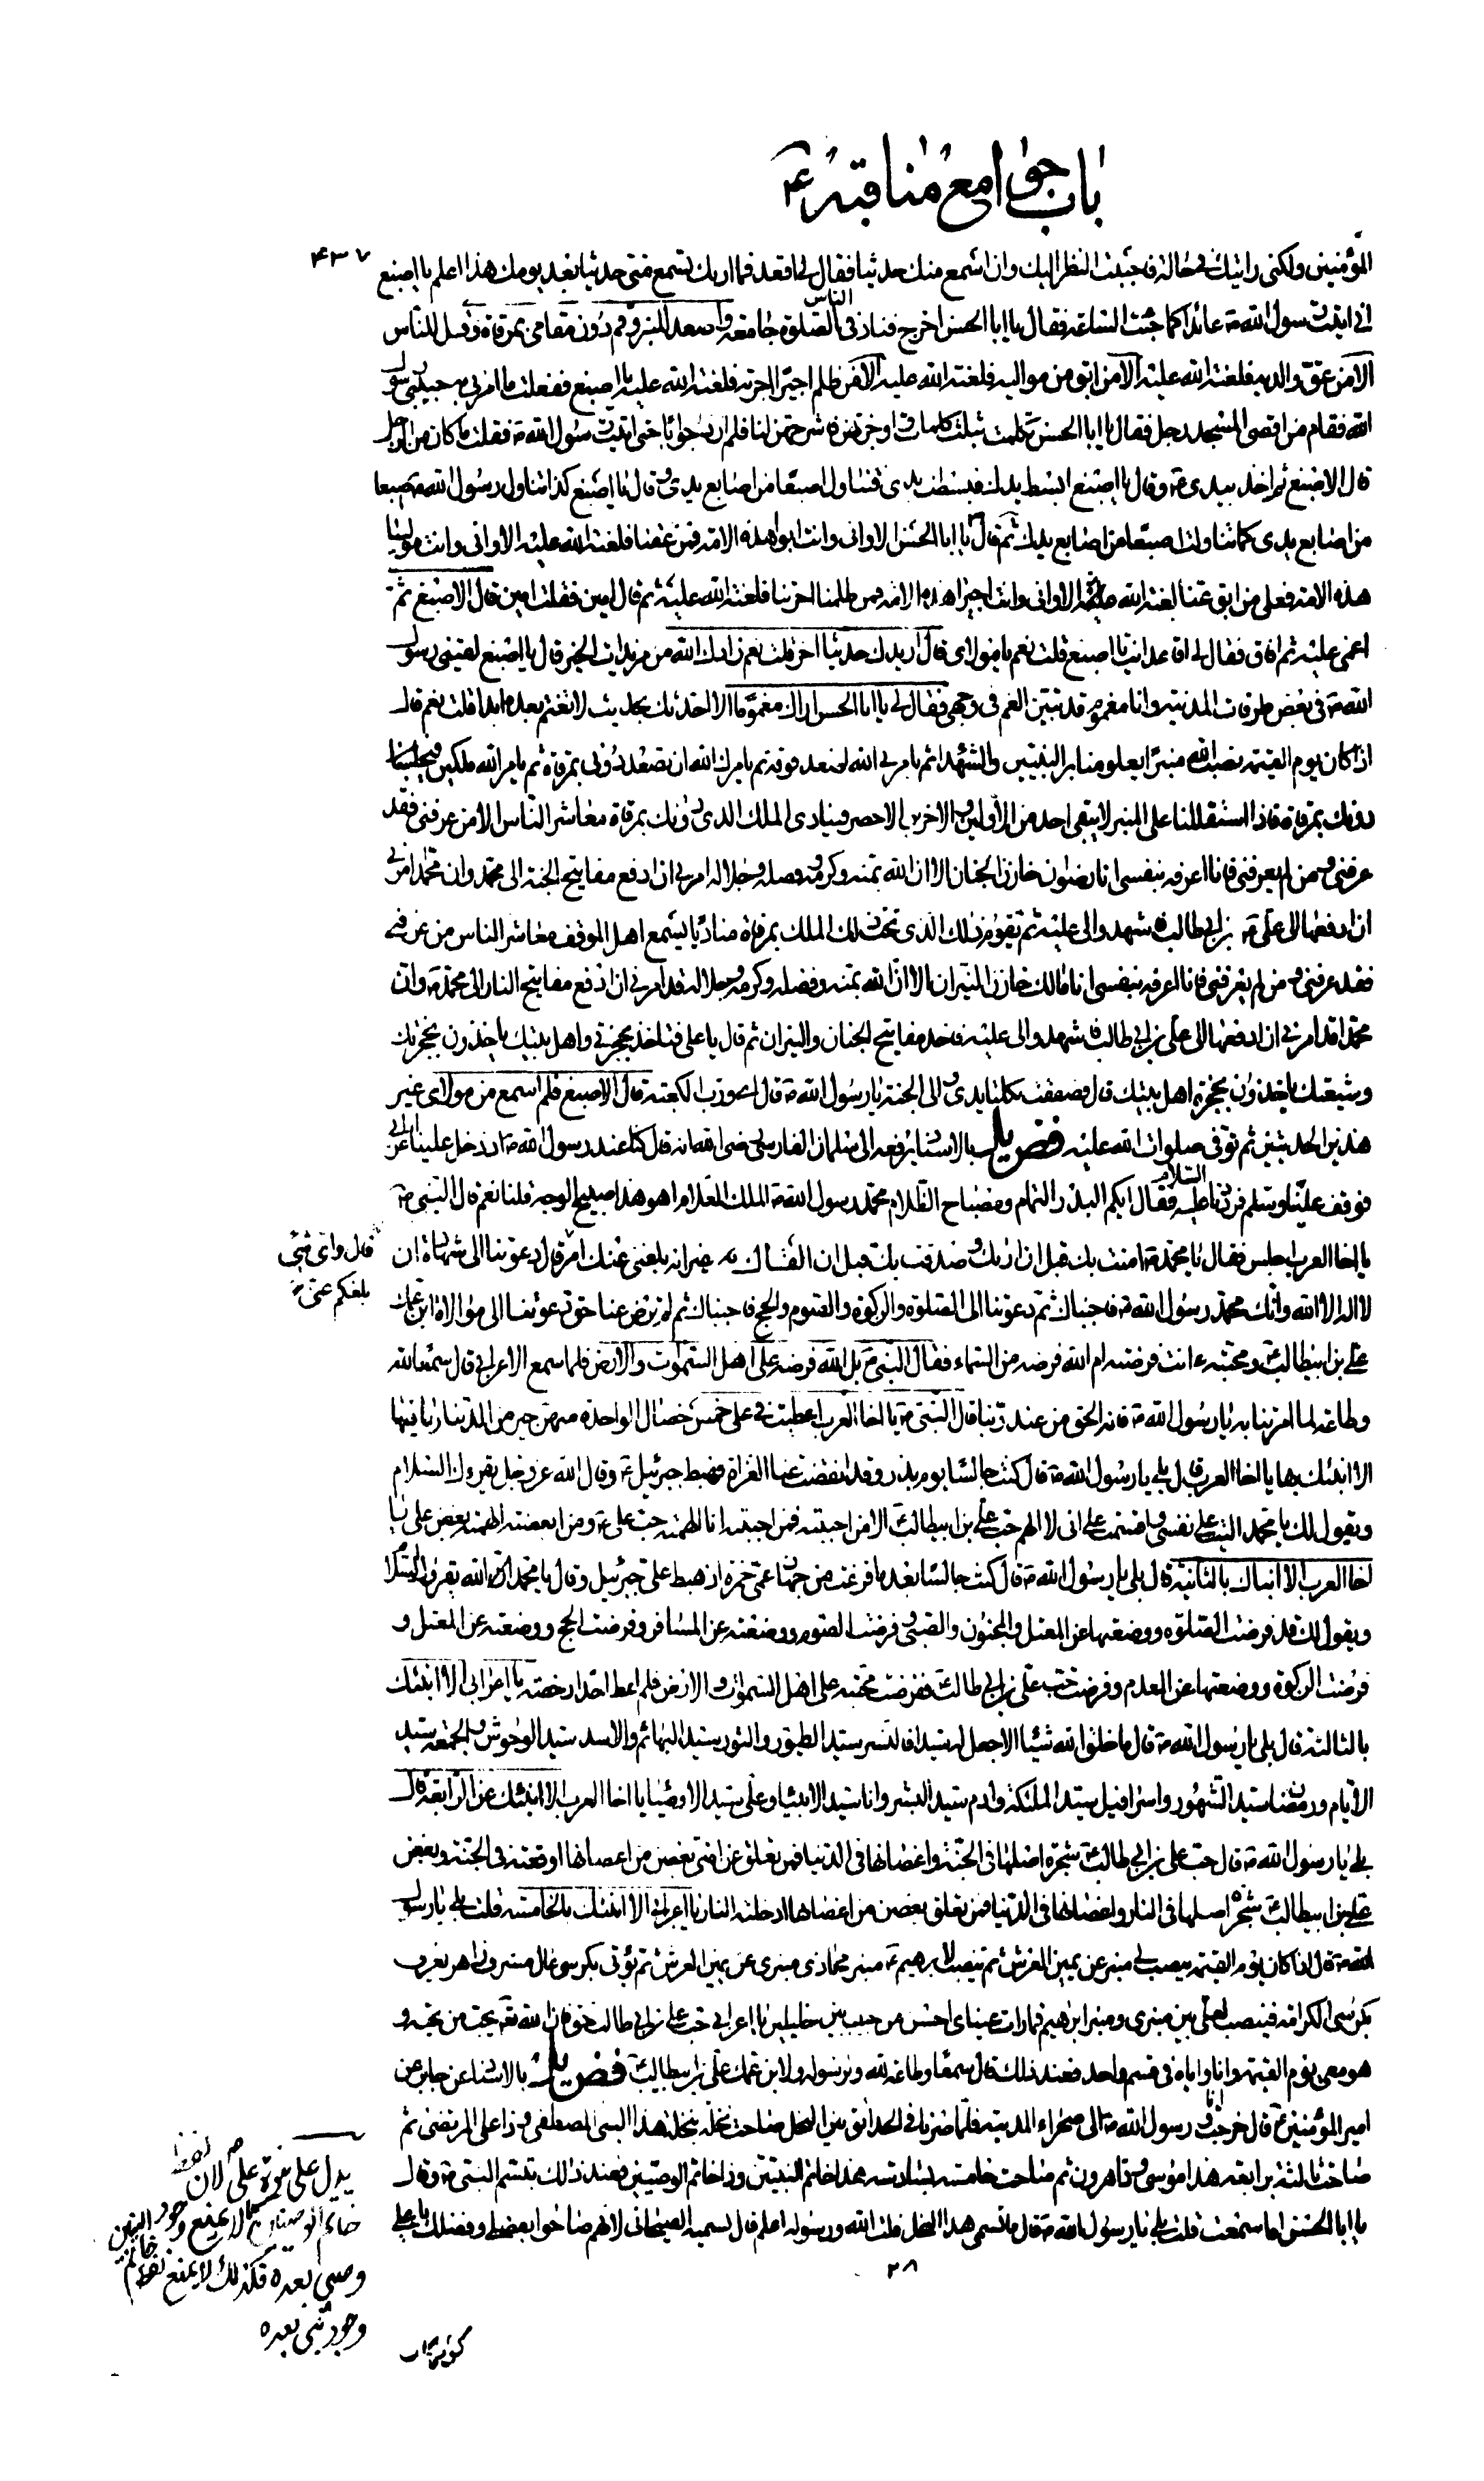 باب جوامع مناقبه ع
۴۳۷
المؤمنين ولكنى رايتك فى حالة فاحببت النظر اليك وان اسمع منك حديثا فقال لى اقعد فما اراك تسمع منى حديثا بعد يومك هذا اعلم يا اصبغ
انى اتيت رسول الله ص عائدا كما جئت الساعة فقال يا ابا الحسن اخرج فناد فى الناس الصلوة جامعة واصعد المنبر وقم دون مقامى بمرقاة وقل للناس
الا من عق والديه فلعنة الله عليه الا من ابق من مواليه فلعنة الله عليه الا من ظلم اجيرا اجرته فلعنة الله عليه يا اصبغ ففعلت ما امرنى به حبيبى رسول
الله فقام من اقصى المسجد رجل فقال يا ابا الحسن تكلمت بثلث كلمات اوجزتهن فاشرحهن لنا فلم ارد جوابا حتى اتيت رسول الله ص فقلت ما كان من الرجل
قال الاصبغ ثم اخذ بيدى ع وقال يا اصبغ ابسط يدك فبسطت يدى فتناول اصبعا من اصابع يدى وقال يا اصبغ كذا تناول رسول الله ص اصبعا
من اصابع يدى كما تناولت اصبعا من اصابع يدك ثم قال يا ابا الحسن الا وانى وانت ابوا هذه الامة فمن عقنا فلعنة الله عليه الا وانى وانت موليا
هذه الامة فعلى من ابق عنا لعنة الله الا وانى وانت اجيرا هذه الامة فمن ظلمنا اجرتنا فلعنة الله عليه ثم قال امين فقلت امين قال الاصبغ ثم
اغمى عليه ثم افاق فقال لى اقاعد انت يا اصبغ قلت نعم يا مولاى قال ازيدك حديثا اخر قلت نعم زادك الله من مزيدات الخير قال يا اصبغ لقينى رسول
الله ص فى بعض طرقات المدينة وانا مغموم قد تبين الغم فى وجهى فقال لى يا ابا الحسن اراك مغموما الا احدثك بحديث لا تغتم بعده ابدا قلت نعم قال
اذا كان يوم القيمة نصب الله منبرا يعلو منابر النبيين والشهداء ثم يامرنى الله اصعد فوقه ثم يامرك الله ان تصعد دونى بمرقاة ثم يامر الله ملكين فيجلسان
دونك بمرقاة فاذا استقللنا على المنبر لا يبقى احد من الاولين والاخرين الا حضر فينادى الملك الذى دونك بمرقاة معاشر الناس الا من عرفنى فقد
عرفنى ومن لم يعرفنى فانا اعرفه بنفسى انا رضوان خازن الجنان الا ان الله بمنه وكرمه وفضله وجلاله امرنى ان ادفع مفاتيح الجنة الى محمد وان محمدا امرنى
ان ادفعها الى على بن ابى طالب فاشهدوا لى عليه ثم يقوم ذلك الذى تحت ذلك الملك بمرقاة مناديا يسمع اهل الموقف معاشر الناس من عرفنى
فقد عرفنى ومن لم يعرفنى فانا اعرفه بنفسى انا مالك خازن النيران الا ان الله بمنه وفضله وكرمه وجلاله قد امرنى ان ادفع مفاتيح النار الى محمد ص وان
محمدا قد امرنى ان ادفعها الى على بن ابى طالب فاشهدوا لى عليه فاخذ مفاتيح الجنان والنيران ثم قال يا على فتاخذ بحجزتى واهل بيتك ياخذون بحجزتك
وشيعتك ياخذون بحجزة اهل بيتك قال فصفقت بكلتا يدى والى الجنة يا رسول الله ص قال اى ورب الكعبة قال الاصبغ فلم اسمع من مولاى غير
هذين الحديثين ثم توفى صلوات الله عليه فض يل بالاسناد يرفعه الى سلمان الفارسى رضى الله انه قال كنا عند رسول الله ص اذ دخل علينا اعرابى
فوقف علينا وسلم فرددنا عليه السلام فقال ايكم البدر التمام ومصباح الظلام محمد رسول الله ص الملك العلام اهو هذا صبيح الوجه قلنا نعم قال النبى ص
يا اخا العرب اجلس فقال يا محمد امنت بك قبل ان اراك وصدقت بك قبل ان القاك غير انه بلغنى عنك امر قال دعوتنا الى شهادة ان
قال واى شئ
بلغكم عنى
لا اله الا الله وانك محمد رسول الله ص فاجبناك ثم دعوتنا الى الصلوة والزكوة والصوم والحج فاجبناك ثم لم ترض عنا حتى دعوتنا الى موالاة ابن عمك
على بن ابيطالب ع ومحبته ءانت فرضته ام الله فرضه من السماء فقال النبى ص بل الله فرضه على اهل السموات والارض فلما سمع الاعرابى قال سمعا لله
وطاعة لما امرتنا به يا رسول الله ص فانه الحق من عند ربنا قال النبى ص يا اخا العرب اعطيت فى على خمس خصال الواحدة منهن خير من الدنيا وما فيها
الا انبئك بها يا اخا العرب قال بلى يا رسول الله ص قال كنت جالسا يوم بدر وقد انقضت عنا الغزاة فهبط جبرئيل ع وقال الله عز وجل يقرءك السلام
ويقول لك يا محمد اليت على نفسى واقسمت على انى لا الهم حب على بن ابيطالب الا من احببته فمن احببته انا الهمته حب على ع ومن ابغضته الهمته بغض على يا
اخا العرب الا انبئك بالثانية قال بلى يا رسول الله ص قال كنت جالسا بعد ما فرغت من جهاز عمى حمزة اذ هبط على جبرئيل وقال يا محمد الله يقرؤك السلام
ويقول لك قد فرضت الصلوة ووضعتها عن المعتل والمجنون والصبى وفرضت الصوم ووضعته عن المسافر وفرضت الحج ووضعته عن المعتل و
فرضت الزكوة ووضعتها عن المعدم وفرضت حب على بن ابى طالب ففرضت محبته على اهل السموات والارض فلم اعط احدا رخصة يا اعرابى الا انبئك
بالثالثة قال بلى يا رسول الله ص قال ما خلق الله شيئا الا جعل له سيدا فالنسر سيد الطيور والثور سيد البهائم والاسد سيد الوحوش والجمعة سيد
الايام ورمضان سيد الشهور واسرافيل سيد الملئكة وادم سيد البشر وانا سيد الانبياء وعلى سيد الاوصياء يا اخا العرب الا انبئك عن الرابعة قال
بلى يا رسول الله ص قال حب على بن ابى طالب ع شجرة اصلها فى الجنة واغصانها فى الدنيا فمن تعلق من امتى بغصن من اغصانها اوقعته فى الجنة وبغض
على بن ابيطالب شجرة اصلها فى النار واغصانها فى الدنيا فمن تعلق بغصن من اغصانها ادخلته النار يا اعرابى الا انبئك بالخامسة قلت بلى يا رسول
الله ص قال اذا كان يوم القيمة ينصب لى منبر عن يمين العرش ثم ينصب لابرهيم ع منبر محاذى منبرى عن يمين العرش ثم يؤتى بكرسى عال مشرف زاهر يعرف
بكرسى الكرامة فينصب لعلى بين منبرى ومنبر ابرهيم فما رات عيناى احسن من حبيب بين خليلين يا اعرابى حب على بن ابى طالب حق فان الله تعالى يحب من يحبه و
هو معى يوم القيمة وانا واياه فى قسم واحد فعند ذلك قال سمعا وطاعة لله ولرسوله ولابن عمك على بن ابيطالب ع فض يل بالاسناد عن جابر عن
امير المؤمنين ع قال خرجت انا ورسول الله ص الى صحراء المدينة فلما صرنا فى الحدائق بين النخل صاحت نخلة بنخلة هذا النبى المصطفى وذا على المرتضى ثم
صاحت ثالثة برابعة هذا موسى وذا هرون ثم صاحت خامسة بسادسة هذا خاتم النبيين وذا خاتم الوصيين فعند ذلك تبسم النبى ص وقال
يا ابا الحسن اما سمعت قلت بلى يا رسول الله ص قال ما تسمى هذا النخل قلت الله ورسوله اعلم قال نسميه الصيحانى لانهم صاحوا بفضلى وفضلك يا على
۲۸
يدل على نبوة على لان لفظ
خاتم الوصيين كما لا يمنع وجود
وصى بعده فكذلك لا يمنع لفظ خاتم النبيين
وجود نبى بعده